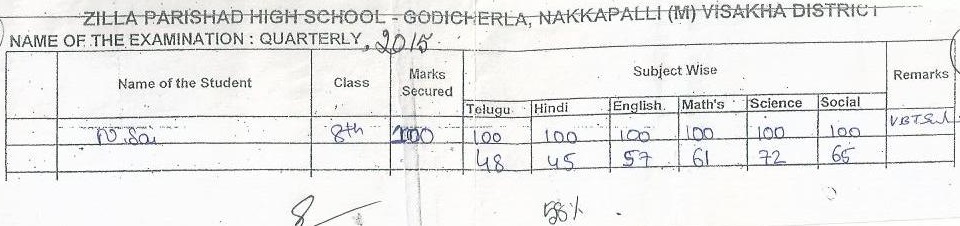 ZILLA PARISHAD HIGH SCHOOL - GODICHERLA, NAKKAPALLI (M) VISAKHA DISTRICT
NAME OF THE EXAMINATION : QUARTERLY, 2015
Name of the Student Class Marks Secured Subject Wise Remarks
Telugu Hindi English Math's Science Social
8th 100 100 100 100 100 100 100
48 45 57 61 72 65
58%